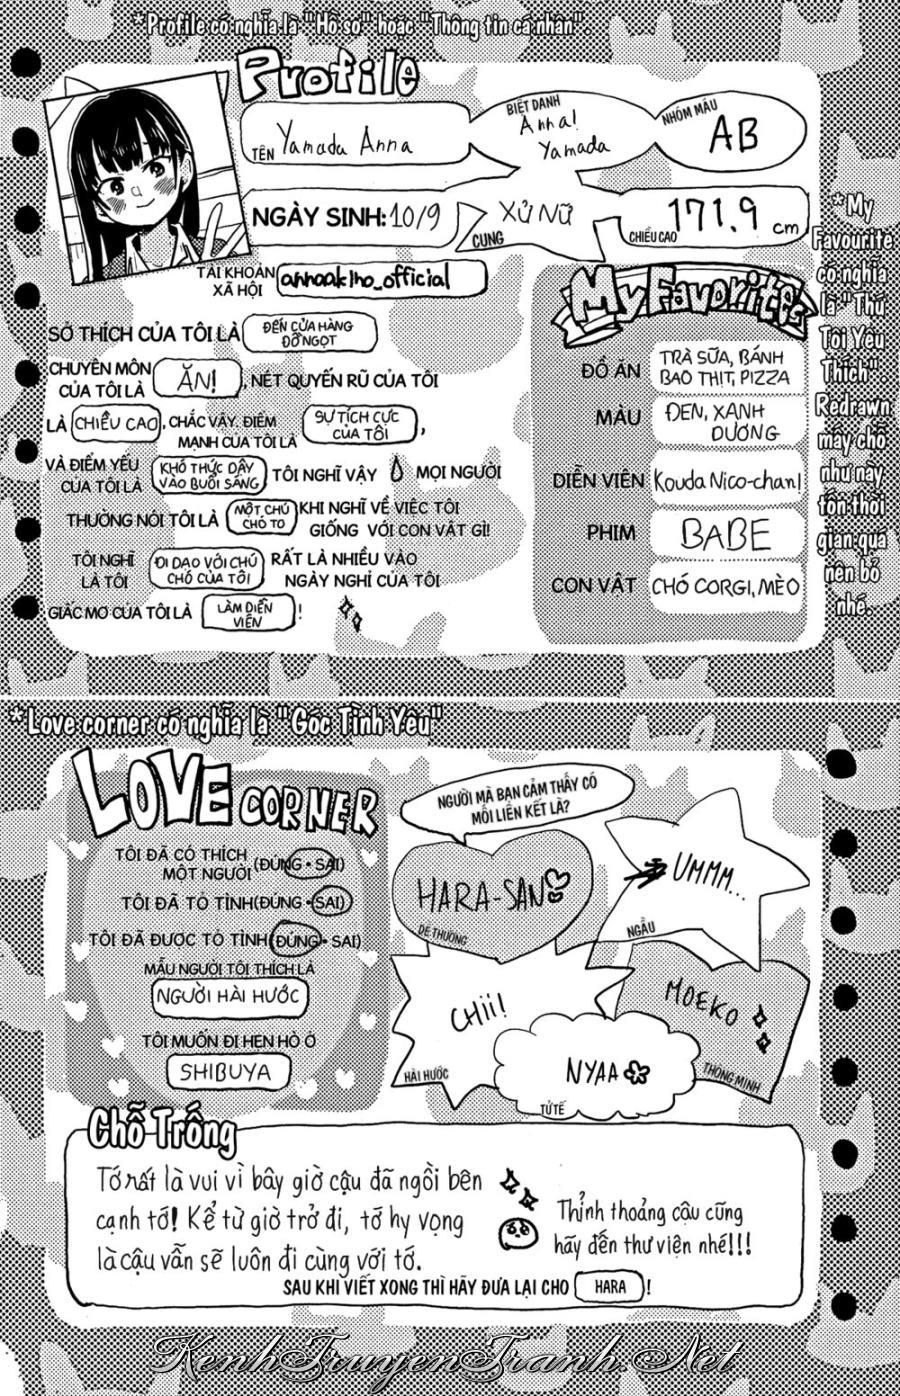 *Profile có nghĩa là "Hồ sơ" hoặc "Thông tin cá nhân".
Profile
TÊN Yamada Anna
BIỆT DANH
Anna!
Yamada
NHÓM MÁU
AB
NGÀY SINH: 10/9
XỬ NỮ
CUNG
171.9 cm
CHIỀU CAO
TÀI KHOẢN
XÃ HỘI
SỞ THÍCH CỦA TÔI LÀ
ĐẾN CỬA HÀNG
ĐỒ NGỌT
CHUYÊN MÔN
CỦA TÔI LÀ
ĂN!
, NÉT QUYẾN RŨ CỦA TÔI
LÀ CHIỀU CAO, CHẮC VẬY. ĐIỂM
MẠNH CỦA TÔI LÀ
SỰ TÍCH CỰC
CỦA TÔI
,
VÀ ĐIỂM YẾU
CỦA TÔI LÀ
KHÓ THỨC DẬY
VÀO BUỔI SÁNG
TÔI NGHĨ VẬY MỌI NGƯỜI
THƯỜNG NÓI TÔI LÀ
MỘT CHÚ
CHÓ TO
KHI NGHĨ VỀ VIỆC TÔI
GIỐNG VỚI CON VẬT GÌ!
TÔI NGHĨ
LÀ TÔI
ĐI DẠO VỚI CHÚ
CHÓ CỦA TÔI
RẤT LÀ NHIỀU VÀO
NGÀY NGHỈ CỦA TÔI
GIẤC MƠ CỦA TÔI LÀ
LÀM DIỄN
VIÊN
!
My Favorites
ĐỒ ĂN
TRÀ SỮA, BÁNH
BAO THỊT, PIZZA
MÀU
ĐEN, XANH
DƯƠNG
DIỄN VIÊN Kouda Nico-chan!
PHIM BABE
CON VẬT CHÓ CORGI, MÈO
*My
Favourite
có nghĩa
là "Thứ
Tôi Yêu
Thích".
Redrawn
mấy chỗ
như này
tốn thời
gian quá
nên bỏ
nhé.
*Love corner có nghĩa là "Góc Tình Yêu"
LOVE CORNER
TÔI ĐÃ CÓ THÍCH
MỘT NGƯỜI (ĐÚNG • SAI)
TÔI ĐÃ TỎ TÌNH (ĐÚNG • SAI)
TÔI ĐÃ ĐƯỢC TỎ TÌNH (ĐÚNG • SAI)
MẪU NGƯỜI TÔI THÍCH LÀ
NGƯỜI HÀI HƯỚC
TÔI MUỐN ĐI HẸN HÒ Ở
SHIBUYA
NGƯỜI MÀ BẠN CẢM THẤY CÓ
MỐI LIÊN KẾT LÀ?
HARA-SAN
DỄ THƯƠNG
UMMM...
NGẦU
CHii!
HÀI HƯỚC
MOEKO
THÔNG MINH
NYAA
TỬ TẾ
Chỗ Trống
Tớ rất là vui vì bây giờ cậu đã ngồi bên
cạnh tớ! Kể từ giờ trở đi, tớ hy vọng
là cậu vẫn sẽ luôn đi cùng với tớ.
Thỉnh thoảng cậu cũng
hãy đến thư viện nhé!!!
SAU KHI VIẾT XONG THÌ HÃY ĐƯA LẠI CHO HARA !
KenhTruyenTranh.Net